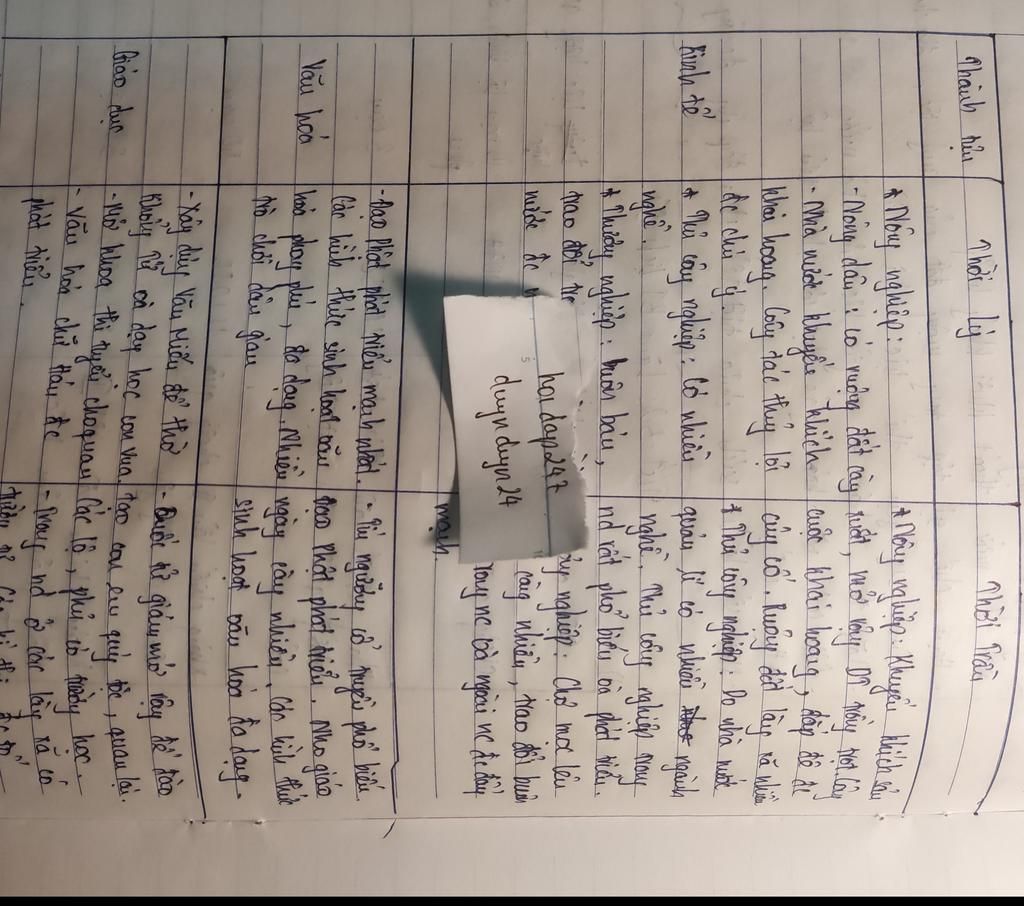 Thành tựu
Thời Lý
Thời Trần
Kinh tế
* Nông nghiệp:
- Nông dân: có ruộng đất cày
- Nhà nước khuyến khích
khai hoang. Công tác thủy lợi
đc chú ý.
* Thủ công nghiệp: Có nhiều
nghề.
* Thương nghiệp: buôn bán,
trao đổi tr
nước đc
* Nông nghiệp: Khuyến khích
xuất, mở rộng DT trồng trọt. Công
cuộc khai hoang, đắp đê đc
củng cố. Ruộng đất làng xã nhiều
* Thủ công nghiệp: Do nhà nước
quản lí có nhiều ngành
nghề. Thủ công nghiệp trong
nd rất phổ biến và phát triển.
nghiệp: Chợ mọc lên
càng nhiều, trao đổi buôn
trong nc và ngoài nc đc đẩy
mạnh
Văn hoá
- Đạo Phật phát triển mạnh nhất.
Các hình thức sinh hoạt văn
hoá phong phú, đa dạng. Nhiều
trò chơi dân gian
- Tín ngưỡng cổ truyền phổ biến.
Đạo Phật phát triển. Nho giáo
ngày càng nhiều. Các hình thức
sinh hoạt văn hóa đa dạng.
Giáo dục
- Xây dựng Văn Miếu để thờ
Khổng Tử và dạy học con vua.
- Mở khoa thi tuyển chọn quan
- Văn hóa chữ Hán đc
phát triển.
- Quốc tử giám mở rộng để đào
tạo con em quý tộc, quan lại.
Các lộ, phủ có trường học.
- Trong nd ở các làng xã có
hoidap247
duynduyn24